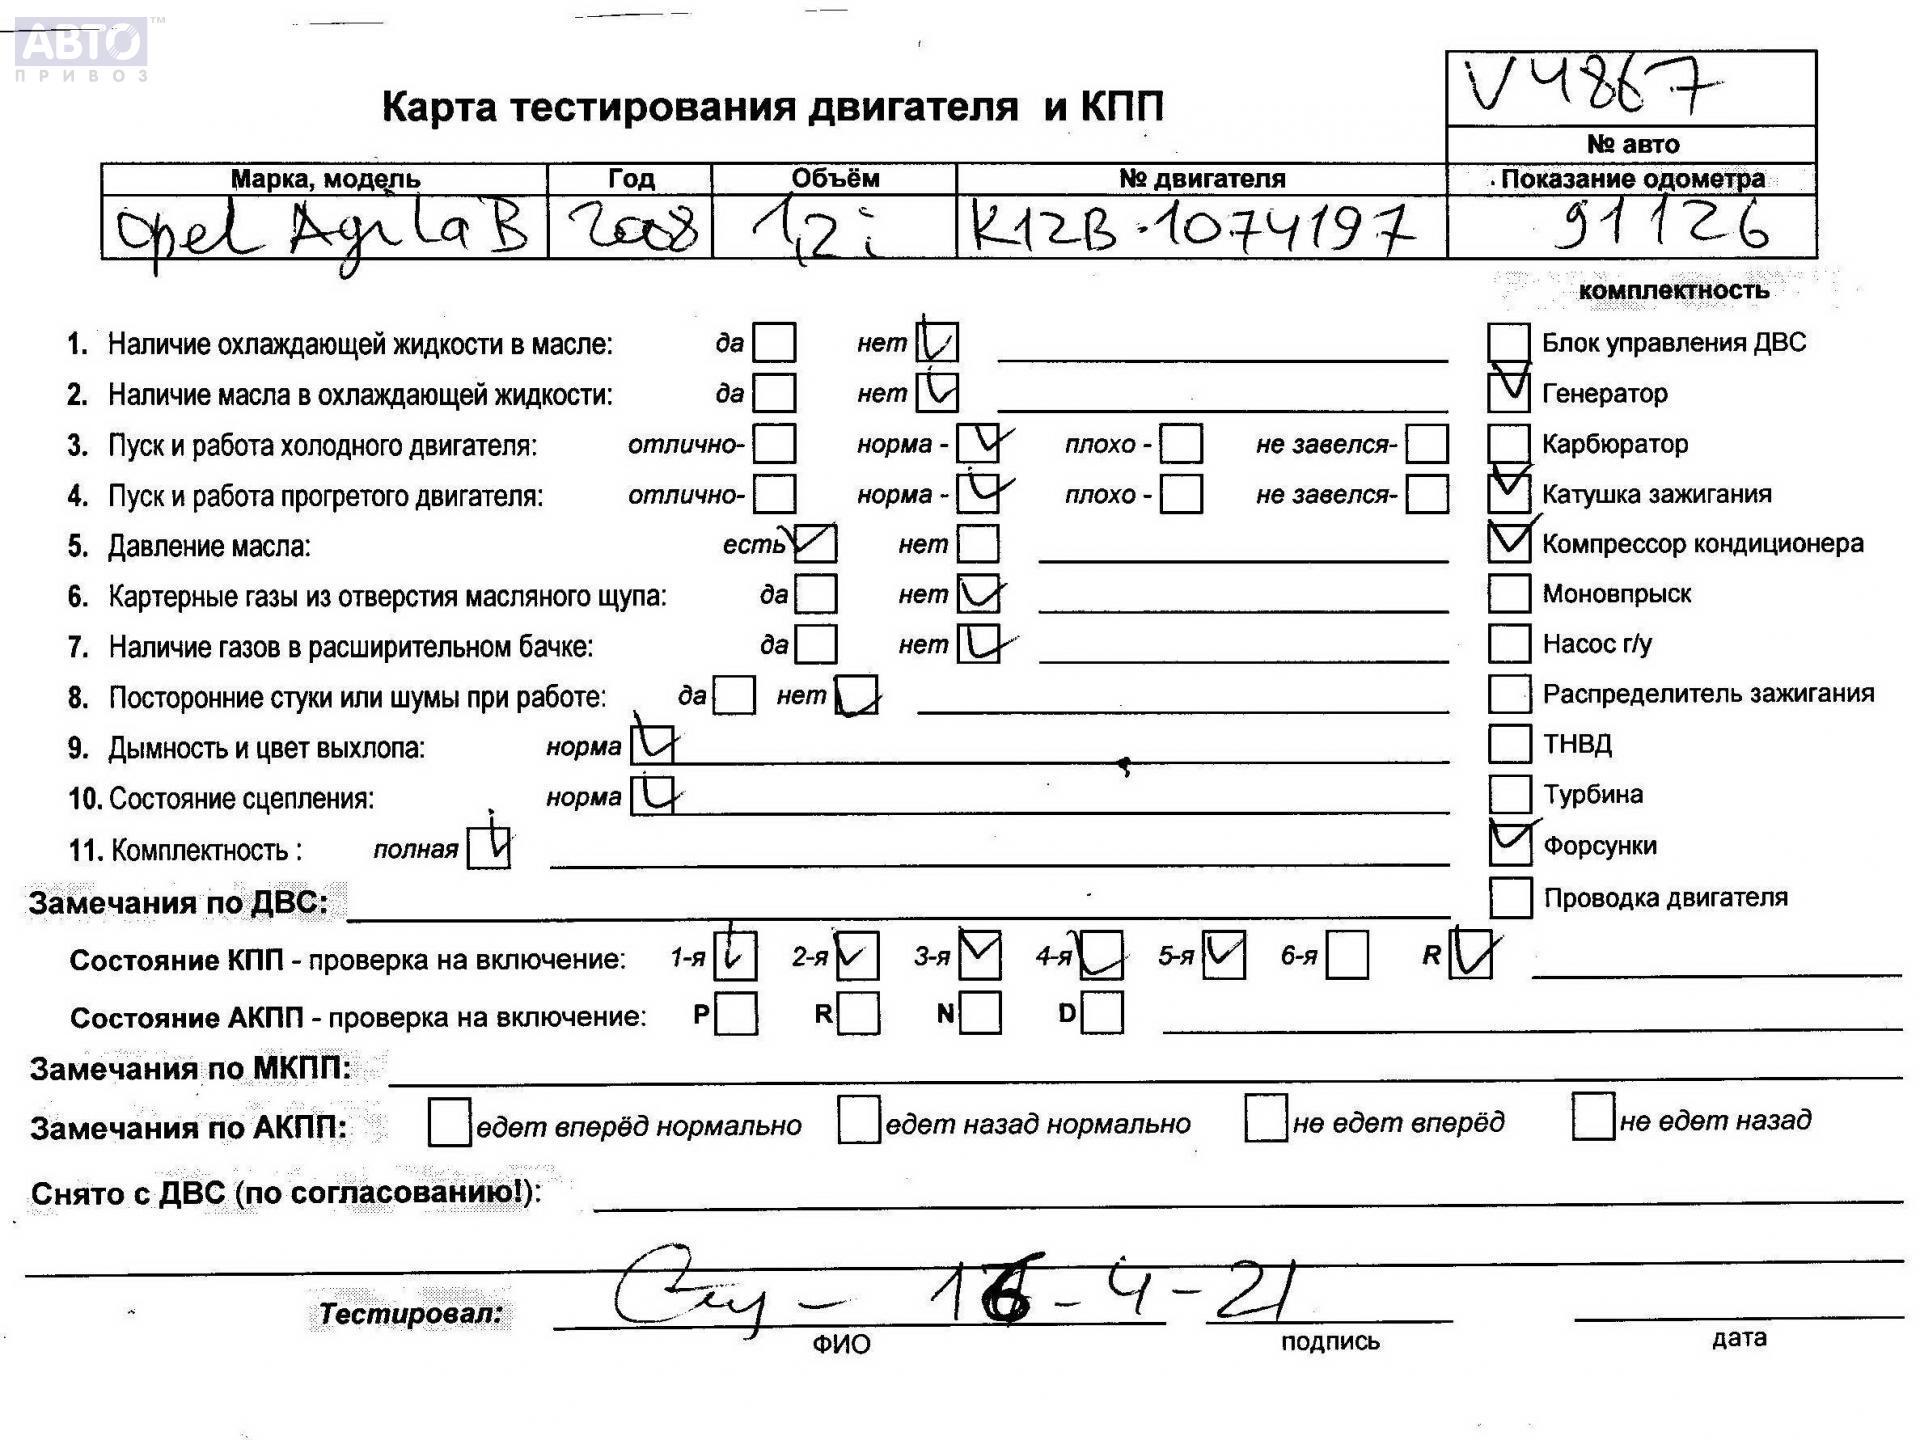 АВТО™
ПРИВОЗ
V4867
Карта тестирования двигателя и КПП
№ авто
Марка, модель Год Объём № двигателя Показание одометра
Opel Agila B 2008 1,2i K12B·1074197 91126
комплектность
1. Наличие охлаждающей жидкости в масле: да нет Блок управления ДВС
2. Наличие масла в охлаждающей жидкости: да нет Генератор
3. Пуск и работа холодного двигателя: отлично- норма - плохо - не завелся- Карбюратор
4. Пуск и работа прогретого двигателя: отлично- норма - плохо - не завелся- Катушка зажигания
5. Давление масла: есть нет Компрессор кондиционера
6. Картерные газы из отверстия масляного щупа: да нет Моновпрыск
7. Наличие газов в расширительном бачке: да нет Насос г/у
8. Посторонние стуки или шумы при работе: да нет Распределитель зажигания
9. Дымность и цвет выхлопа: норма ТНВД
10. Состояние сцепления: норма Турбина
11. Комплектность : полная Форсунки
Замечания по ДВС: Проводка двигателя
Состояние КПП - проверка на включение: 1-я 2-я 3-я 4-я 5-я 6-я R
Состояние АКПП - проверка на включение: P R N D
Замечания по МКПП:
Замечания по АКПП: едет вперёд нормально едет назад нормально не едет вперёд не едет назад
Снято с ДВС (по согласованию!):
Тестировал: 16-4-21
ФИО подпись дата